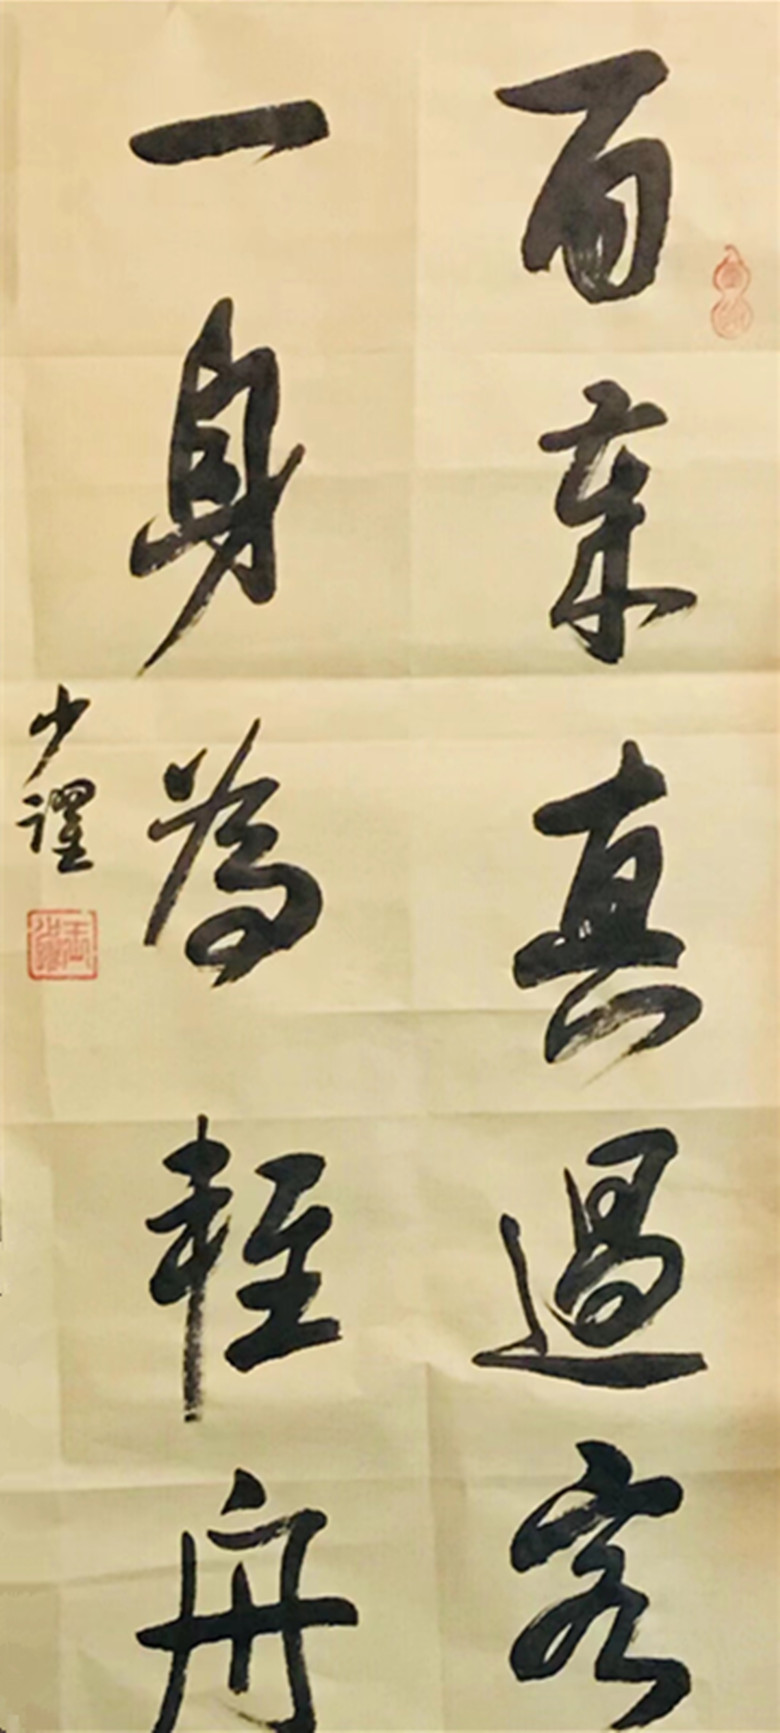 百年真過客
一身為輕舟
少